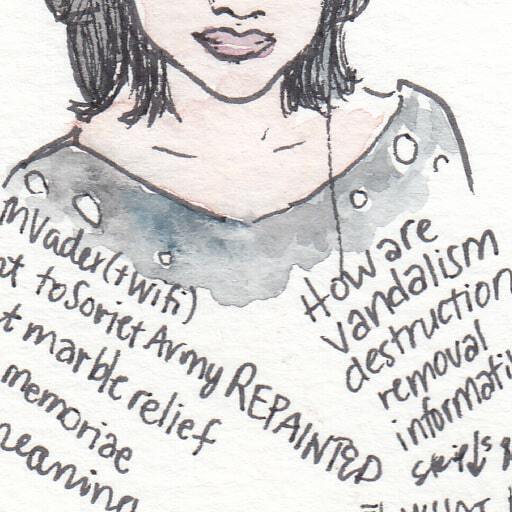 MVader (+ wifi)
to Soviet Army REPAINTED
marble relief
memoriae
meaning
How are
vandalism
destruction
removal
WHAT